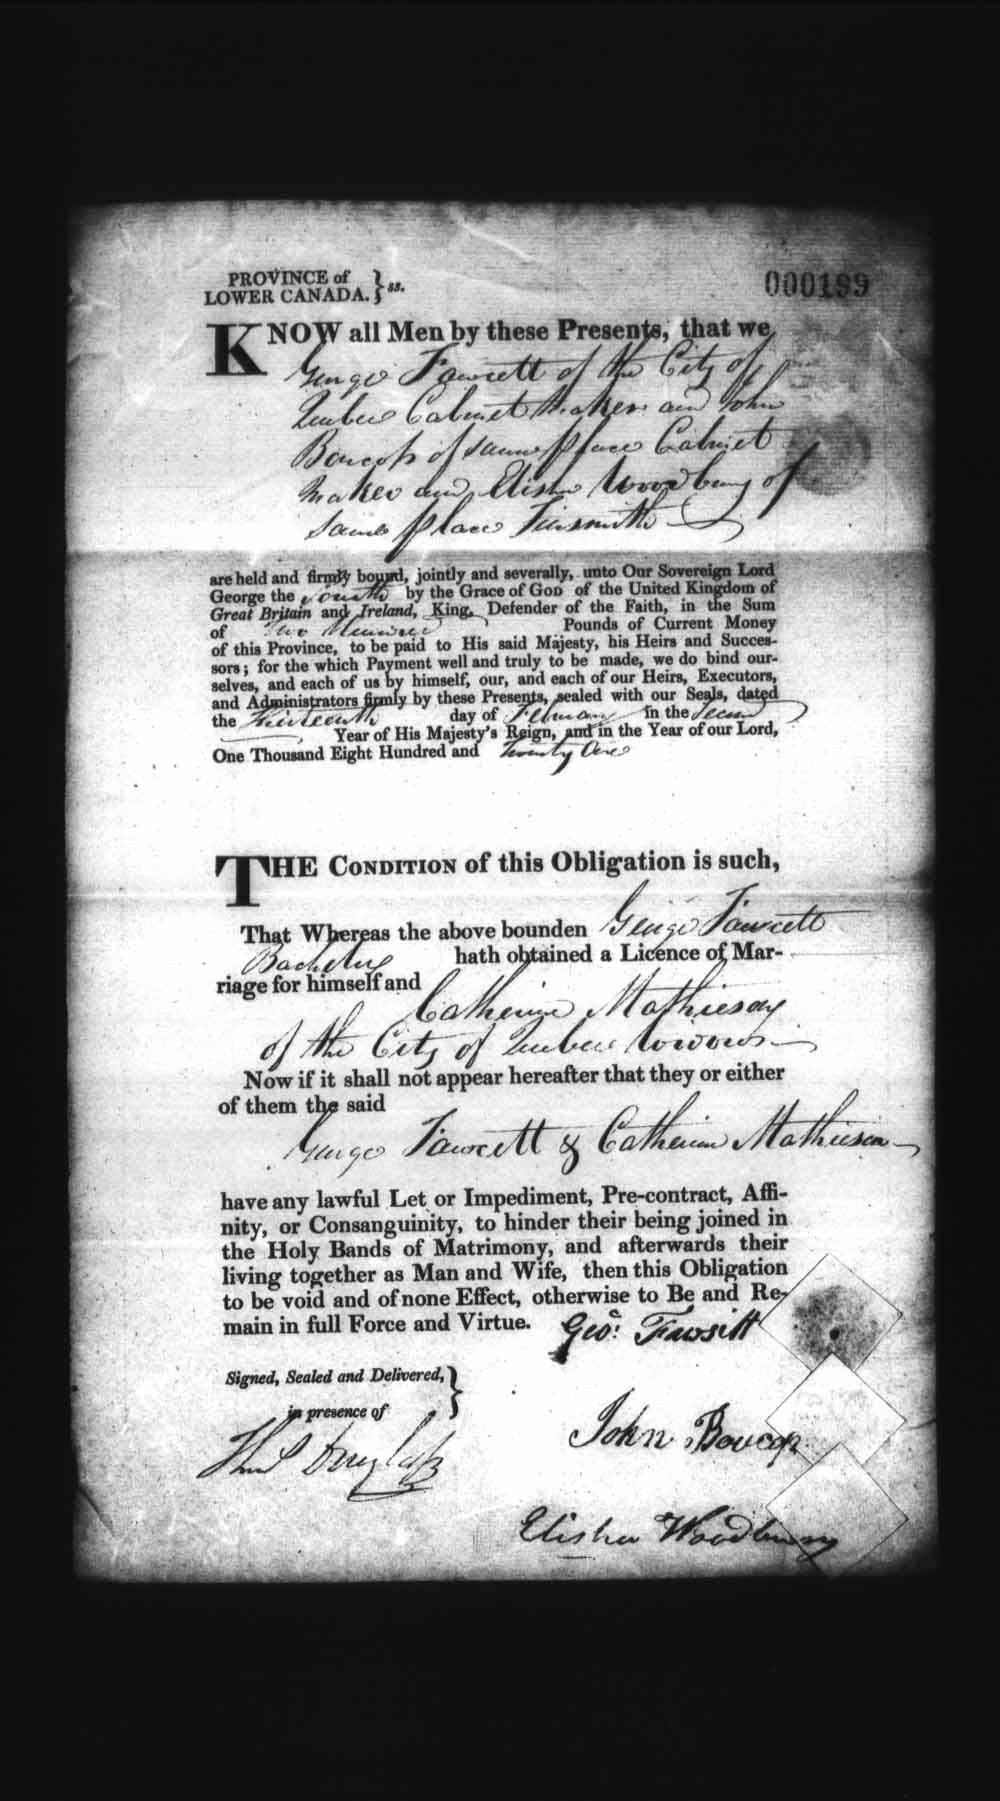 PROVINCE of
LOWER CANADA. } ss.
000199
KNOW all Men by these Presents, that we
George Fawcett of the City of
Quebec Cabinet Maker and John
Boucop of same place Cabinet
Maker and Elisha Woodbury of
same place Tinsmith
are held and firmly bound, jointly and severally, unto Our Sovereign Lord
George the fourth by the Grace of GOD of the United Kingdom of
Great Britain and Ireland, King, Defender of the Faith, in the Sum
of Two Hundred Pounds of Current Money
of this Province, to be paid to His said Majesty, his Heirs and Succes-
sors; for the which Payment well and truly to be made, we do bind our-
selves, and each of us by himself, our, and each of our Heirs, Executors,
and Administrators firmly by these Presents, sealed with our Seals, dated
the Thirteenth day of February in the Second
Year of His Majesty's Reign, and in the Year of our Lord,
One Thousand Eight Hundred and Twenty One
THE CONDITION of this Obligation is such,
That Whereas the above bounden George Fawcett
Bachelor hath obtained a Licence of Mar-
riage for himself and
Catherine Mathieson
of the City of Quebec Widow
Now if it shall not appear hereafter that they or either
of them the said
George Fawcett & Catherine Mathieson
have any lawful Let or Impediment, Pre-contract, Affi-
nity, or Consanguinity, to hinder their being joined in
the Holy Bands of Matrimony, and afterwards their
living together as Man and Wife, then this Obligation
to be void and of none Effect, otherwise to Be and Re-
main in full Force and Virtue.
Geo: Fawsitt
Signed, Sealed and Delivered, }
in presence of
John Boucop
Douglass
Elisha Woodbury